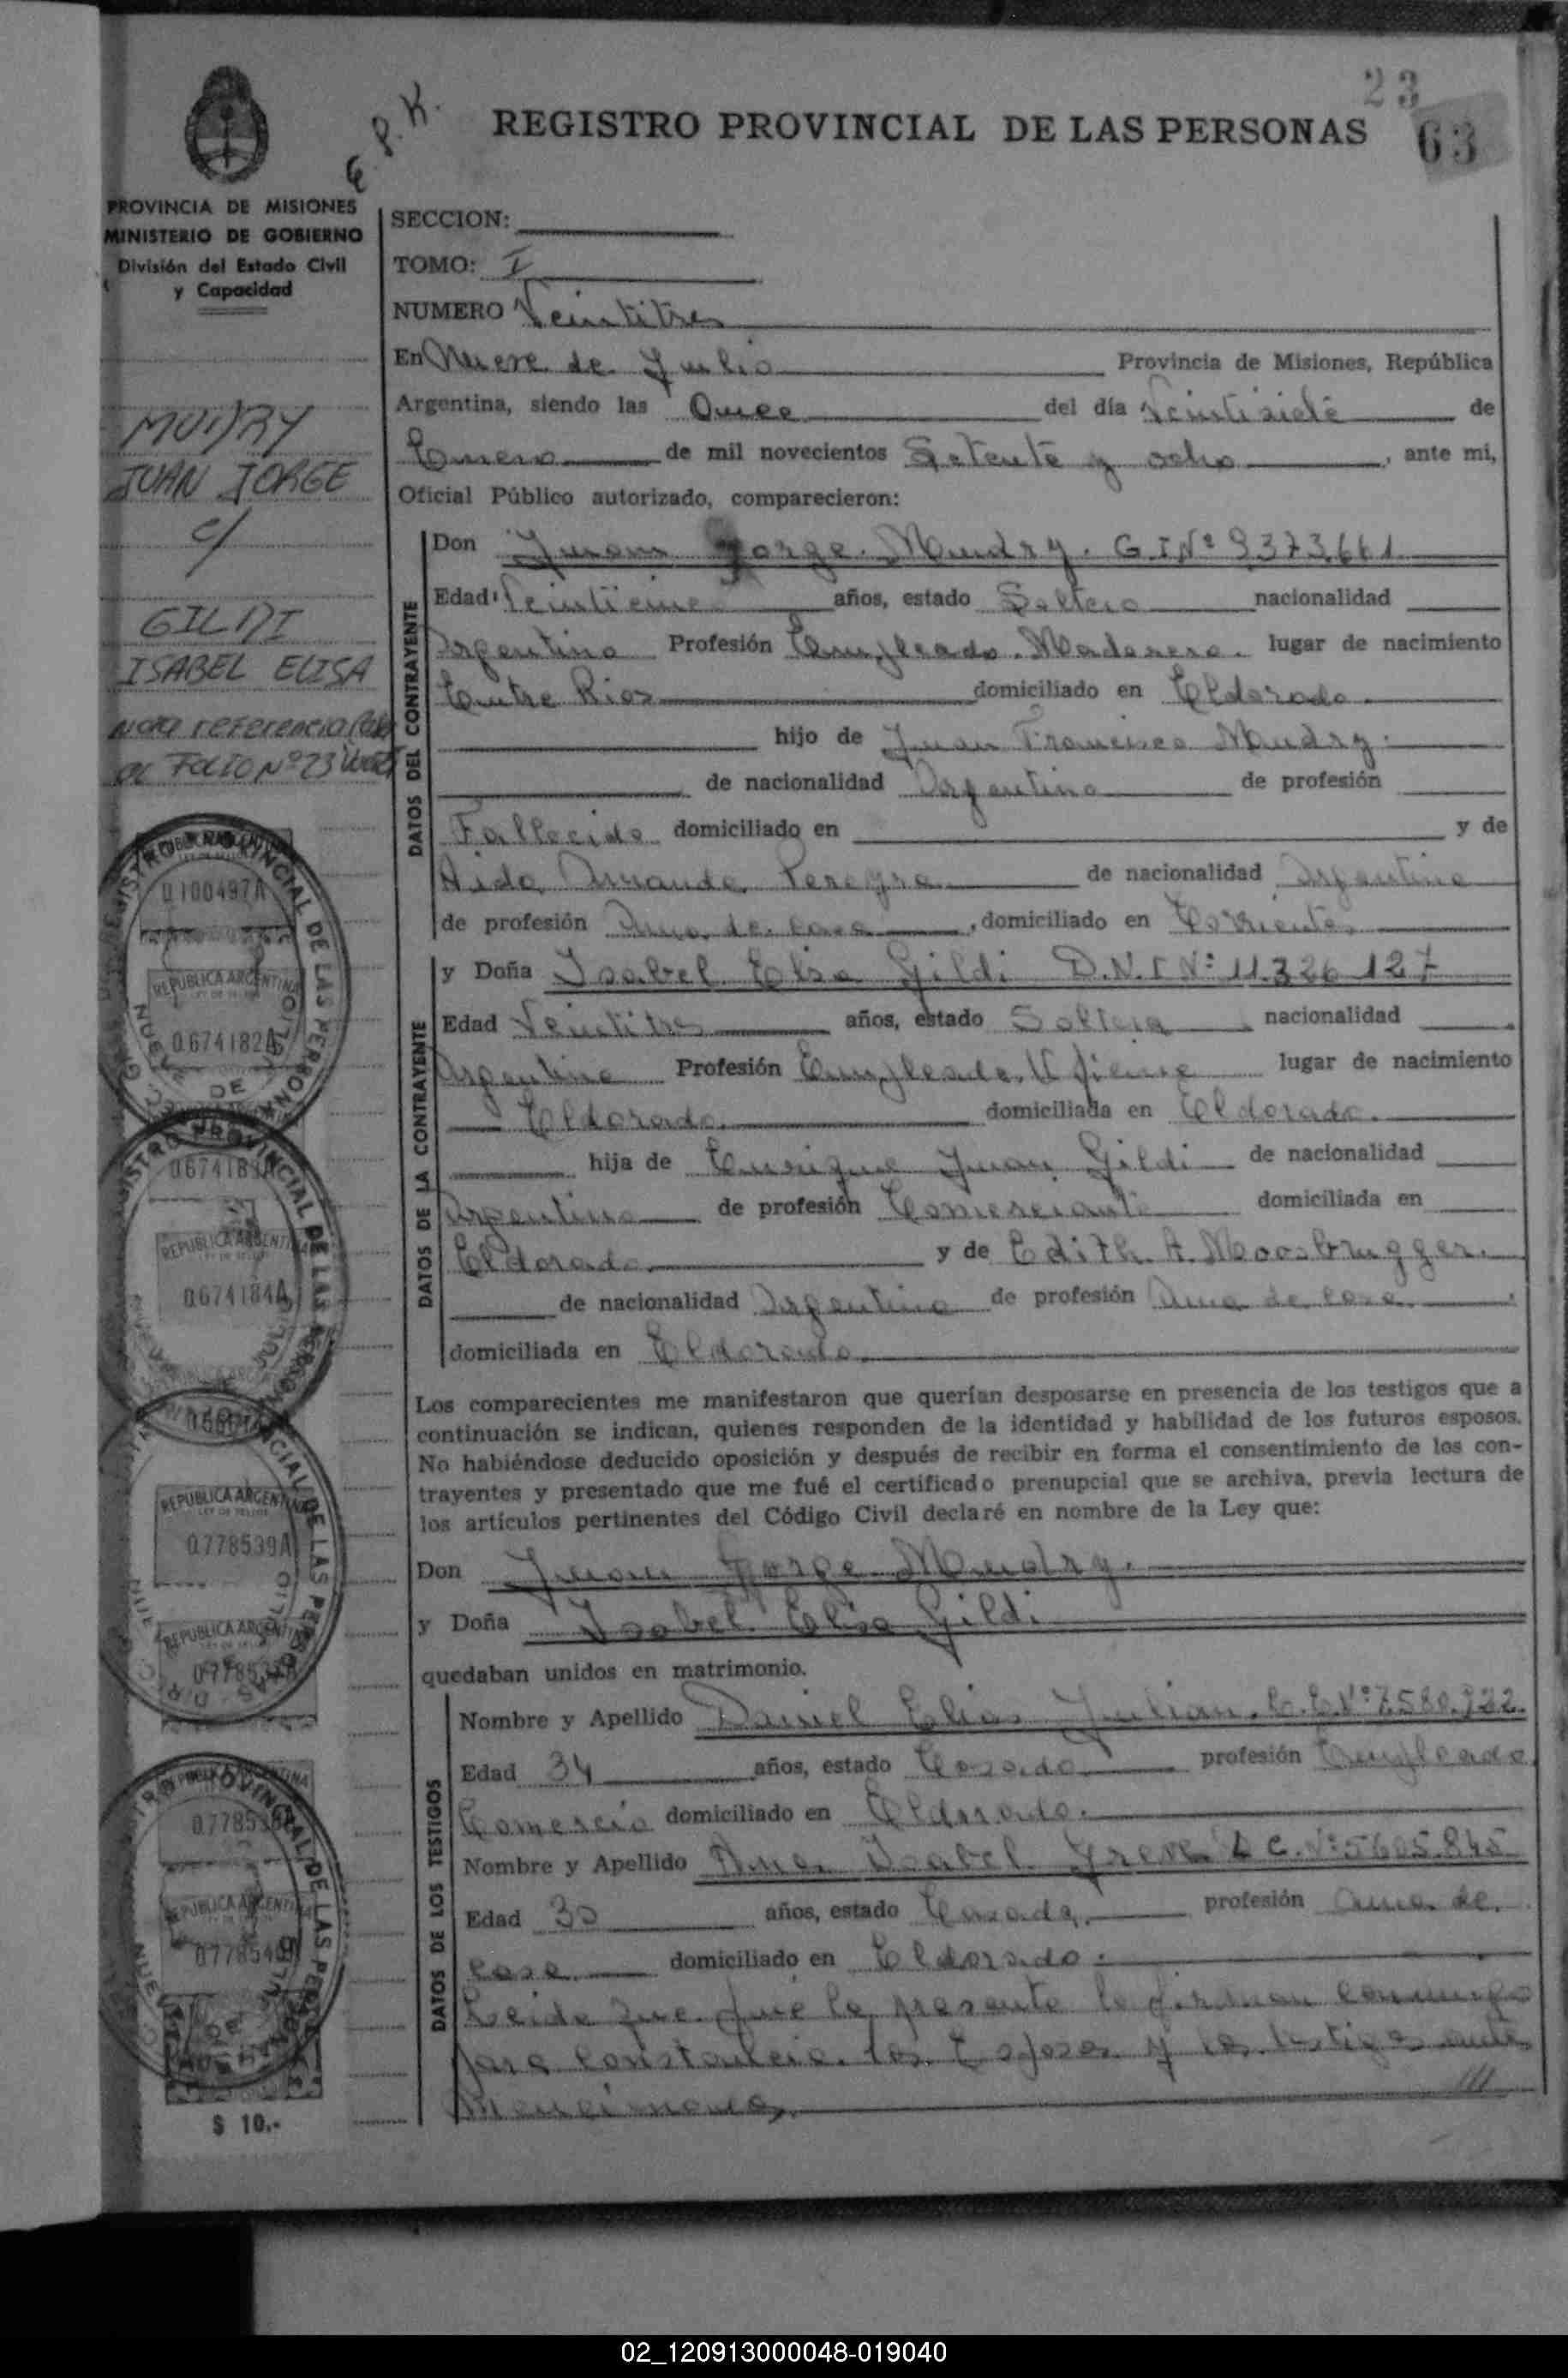 23
63
E. P. K.
REGISTRO PROVINCIAL DE LAS PERSONAS
PROVINCIA DE MISIONES
MINISTERIO DE GOBIERNO
División del Estado Civil
y Capacidad
MUDRY
JUAN JORGE
c/
GILDI
ISABEL ELISA
Nota referencia
al FOLIO Nº 23
SECCION:
TOMO: I
NUMERO Veintitres
En Nueve de Julio Provincia de Misiones, República
Argentina, siendo las Once del día Veintisiete de
Enero de mil novecientos Setenta y ocho, ante mi,
Oficial Público autorizado, comparecieron:
DATOS DEL CONTRAYENTE
Don Juan Jorge Mudry. C.I Nº 9373.661
Edad: Veinticinco años, estado Soltero nacionalidad
Argentino Profesión Empleado Maderero. lugar de nacimiento
Entre Rios domiciliado en Eldorado.
hijo de Juan Francisco Mudry.
de nacionalidad Argentino de profesión
Fallecido domiciliado en y de
Aida Amanda Pereyra de nacionalidad Argentina
de profesión Ama de casa, domiciliado en Corrientes
DATOS DE LA CONTRAYENTE
y Doña Isabel Elisa Gildi D.N.I Nº 11.326.127
Edad Veintitres años, estado Soltera nacionalidad
Argentina Profesión Empleada Oficina lugar de nacimiento
Eldorado. domiciliada en Eldorado.
hija de Enrique Juan Gildi de nacionalidad
Argentino de profesión Comerciante domiciliada en
Eldorado. y de Edith A. Moosbrugger.
de nacionalidad Argentina de profesión Ama de casa
domiciliada en Eldorado.
Los comparecientes me manifestaron que querían desposarse en presencia de los testigos que a
continuación se indican, quienes responden de la identidad y habilidad de los futuros esposos.
No habiéndose deducido oposición y después de recibir en forma el consentimiento de los con-
trayentes y presentado que me fué el certificado prenupcial que se archiva, previa lectura de
los artículos pertinentes del Código Civil declaré en nombre de la Ley que:
Don Juan Jorge Mudry.
y Doña Isabel Elisa Gildi
quedaban unidos en matrimonio.
DATOS DE LOS TESTIGOS
Nombre y Apellido Daniel Elias Julian. Nº 7580.922.
Edad 34 años, estado Casado profesión Empleado
Comercio domiciliado en Eldorado.
Nombre y Apellido Ana Isabel L C. Nº 5605.845
Edad 30 años, estado Casada, profesión Ama de
casa domiciliado en Eldorado.
Leida que fué la presente la firman conmigo
para constancia los Esposos y los testigos ante
mencionados. ///
REGISTRO PROVINCIAL DE LAS PERSONAS
0100497A
REPUBLICA ARGENTINA
0674182A
0674183A
REPUBLICA ARGENTINA
0674184A
REPUBLICA ARGENTINA
0778539A
REPUBLICA ARGENTINA
REPUBLICA ARGENTINA
$ 10.-
02_120913000048-019040